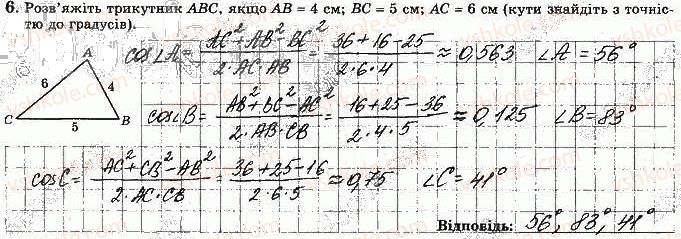 6. Розв'яжіть трикутник ABC, якщо AB = 4 см; BC = 5 см; AC = 6 см (кути знайдіть з точніс-
тю до градусів).
cos∠A = (AC² + AB² - BC²) / (2·AC·AB) = (36 + 16 - 25) / (2·6·4) ≈ 0,563 ∠A = 56°
A
6
4
C
5
B
cos∠B = (AB² + BC² - AC²) / (2·AB·CB) = (16 + 25 - 36) / (2·4·5) ≈ 0,125 ∠B = 83°
cosC = (AC² + CB² - AB²) / (2·AC·CB) = (36 + 25 - 16) / (2·6·5) ≈ 0,75 ∠C = 41°
Відповідь: 56°, 83°, 41°